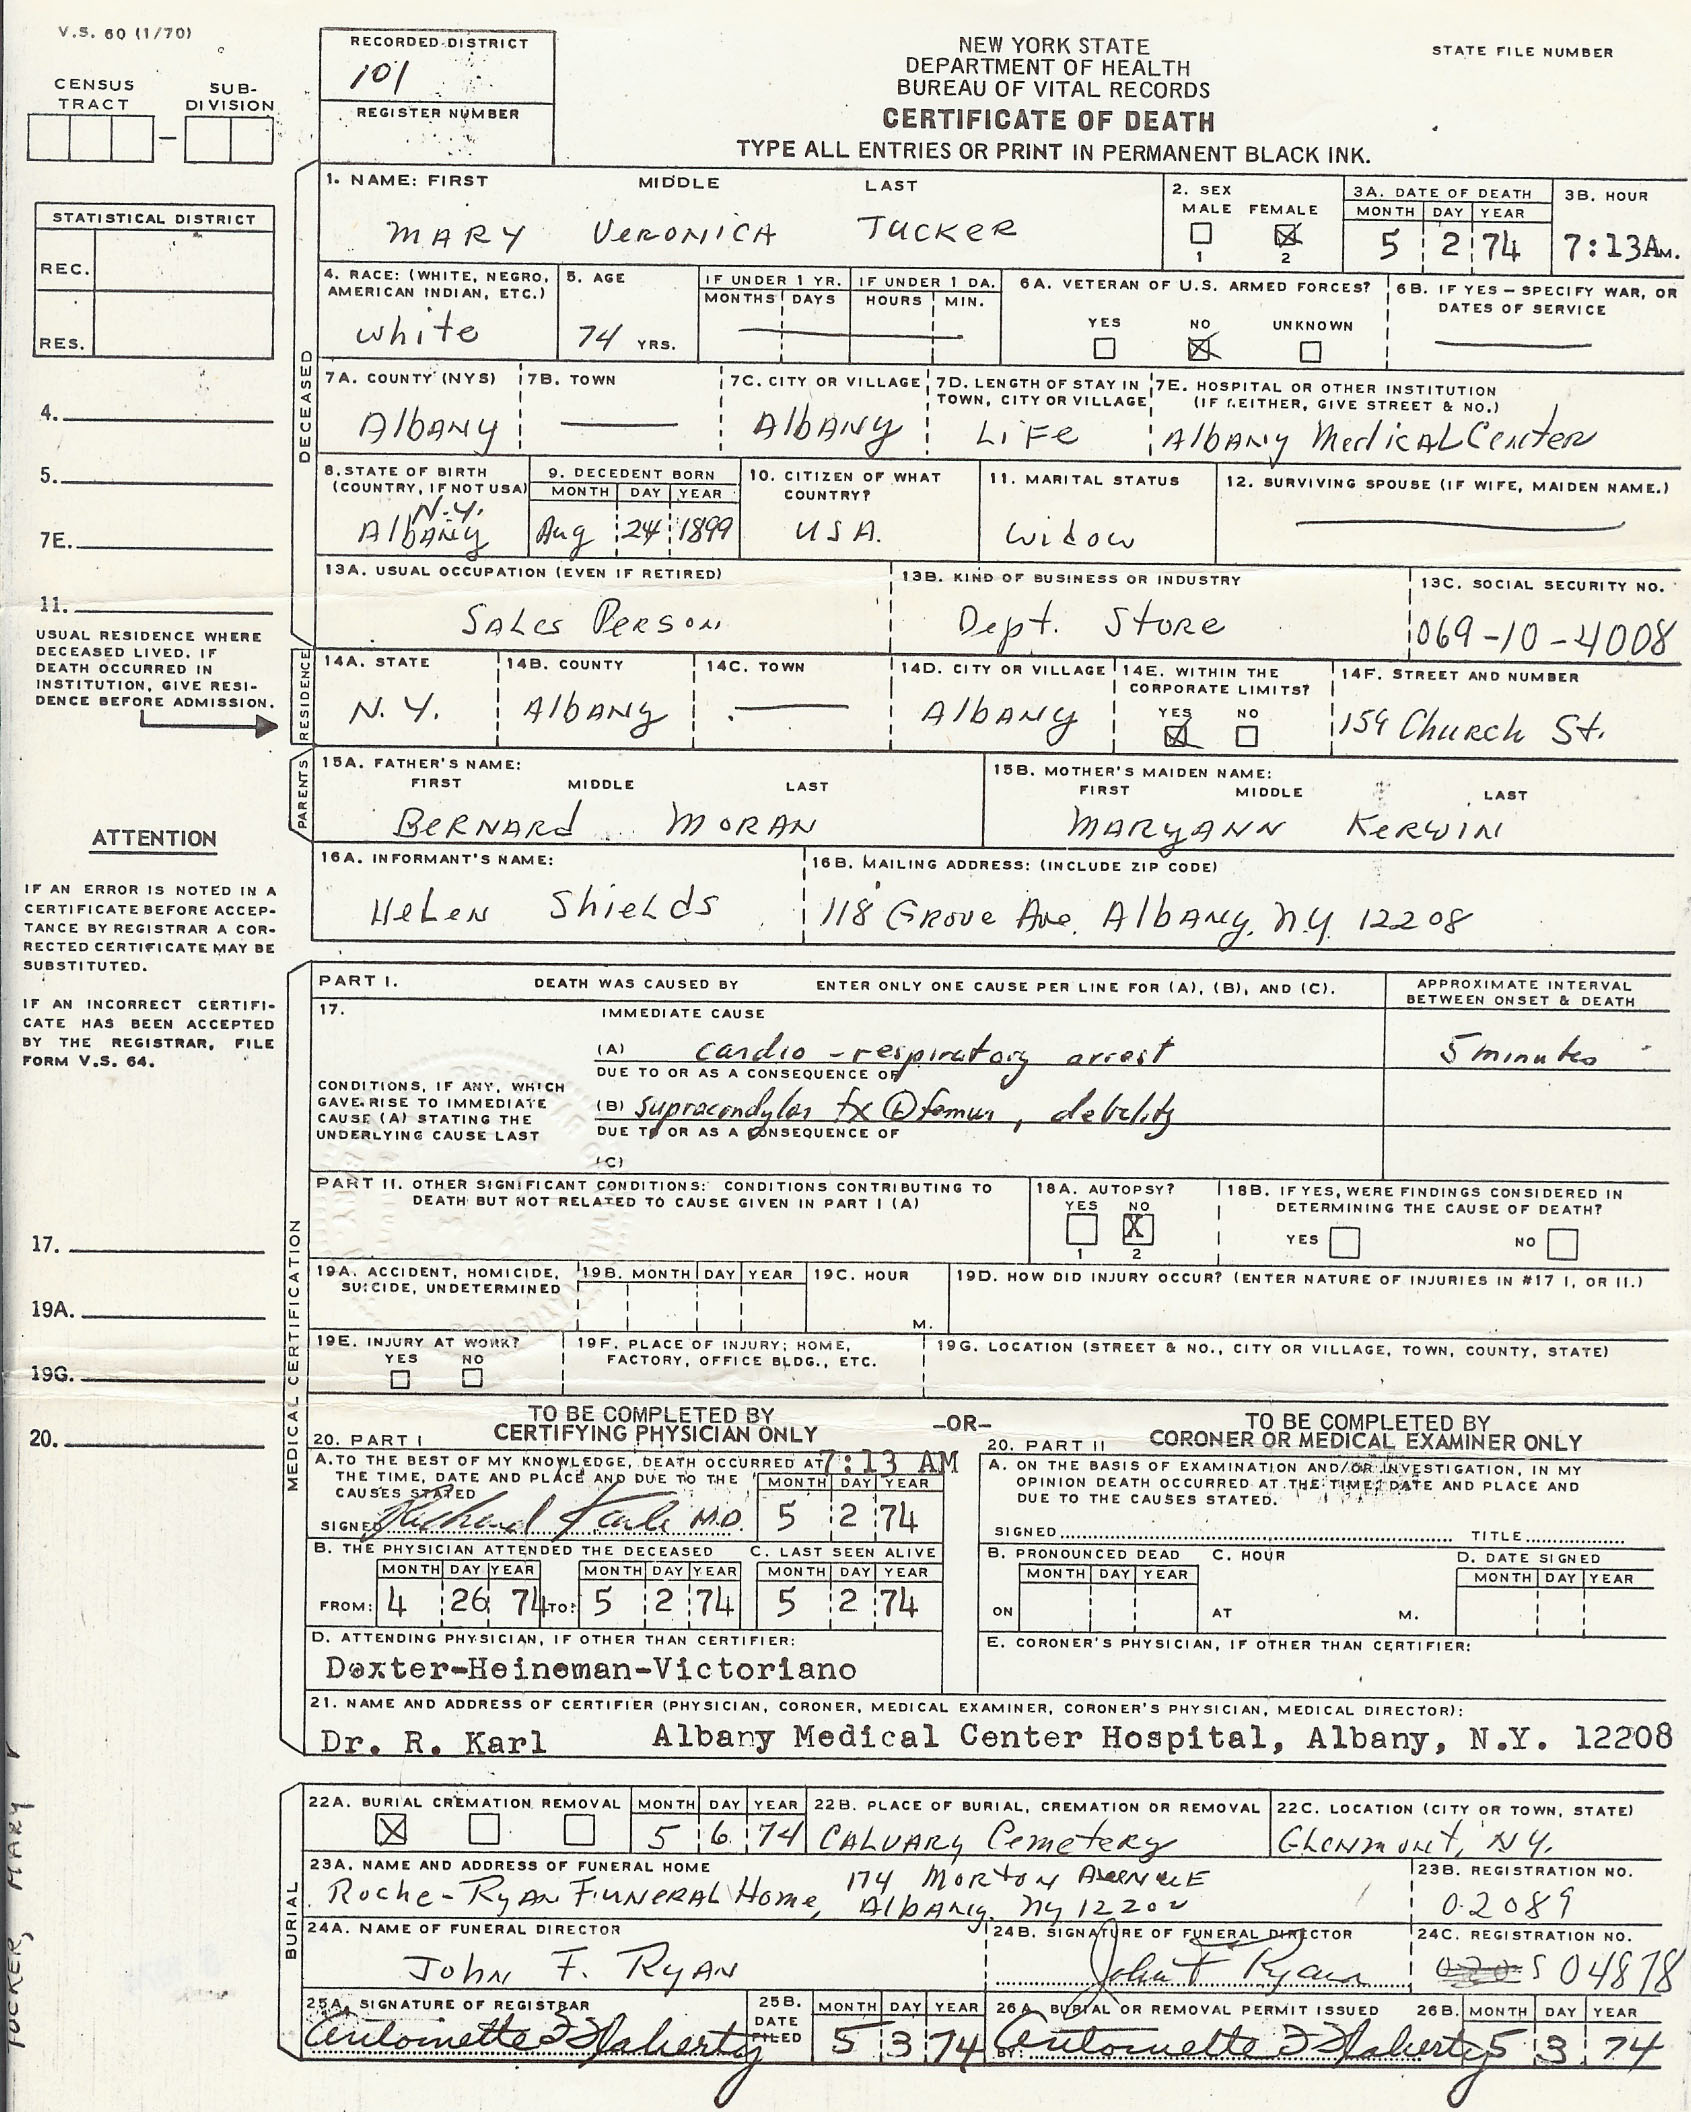 V.S. 60 (1/70)
CENSUS TRACT
SUB-DIVISION
RECORDED DISTRICT
101
REGISTER NUMBER
NEW YORK STATE
DEPARTMENT OF HEALTH
BUREAU OF VITAL RECORDS
CERTIFICATE OF DEATH
TYPE ALL ENTRIES OR PRINT IN PERMANENT BLACK INK.
STATE FILE NUMBER
STATISTICAL DISTRICT
REC.
RES.
DECEASED
1. NAME: FIRST MIDDLE LAST
MARY VERONICA TUCKER
2. SEX
MALE FEMALE
1 2
3A. DATE OF DEATH
MONTH DAY YEAR
5 2 74
3B. HOUR
7:13AM.
4. RACE: (WHITE, NEGRO, AMERICAN INDIAN, ETC.)
white
5. AGE
74 YRS.
IF UNDER 1 YR. IF UNDER 1 DA.
MONTHS DAYS HOURS MIN.
6A. VETERAN OF U.S. ARMED FORCES?
YES NO UNKNOWN
6B. IF YES – SPECIFY WAR, OR DATES OF SERVICE
7A. COUNTY (NYS)
Albany
7B. TOWN
7C. CITY OR VILLAGE
Albany
7D. LENGTH OF STAY IN TOWN, CITY OR VILLAGE
Life
7E. HOSPITAL OR OTHER INSTITUTION
(IF NEITHER, GIVE STREET & NO.)
Albany Medical Center
8. STATE OF BIRTH
(COUNTRY, IF NOT USA)
N.Y.
Albany
9. DECEDENT BORN
MONTH DAY YEAR
Aug 24 1899
10. CITIZEN OF WHAT COUNTRY?
USA.
11. MARITAL STATUS
Widow
12. SURVIVING SPOUSE (IF WIFE, MAIDEN NAME.)
13A. USUAL OCCUPATION (EVEN IF RETIRED)
Sales Person
13B. KIND OF BUSINESS OR INDUSTRY
Dept. Store
13C. SOCIAL SECURITY NO.
069-10-4008
4.
5.
7E.
11.
USUAL RESIDENCE WHERE
DECEASED LIVED. IF
DEATH OCCURRED IN
INSTITUTION, GIVE RESI-
DENCE BEFORE ADMISSION.
RESIDENCE
14A. STATE
N.Y.
14B. COUNTY
Albany
14C. TOWN
14D. CITY OR VILLAGE
Albany
14E. WITHIN THE CORPORATE LIMITS?
YES NO
14F. STREET AND NUMBER
159 Church St.
PARENTS
15A. FATHER'S NAME:
FIRST MIDDLE LAST
Bernard Moran
15B. MOTHER'S MAIDEN NAME:
FIRST MIDDLE LAST
Maryann Kerwin
16A. INFORMANT'S NAME:
Helen Shields
16B. MAILING ADDRESS: (INCLUDE ZIP CODE)
118 Grove Ave. Albany, N.Y. 12208
ATTENTION
IF AN ERROR IS NOTED IN A
CERTIFICATE BEFORE ACCEP-
TANCE BY REGISTRAR A COR-
RECTED CERTIFICATE MAY BE
SUBSTITUTED.
IF AN INCORRECT CERTIFI-
CATE HAS BEEN ACCEPTED
BY THE REGISTRAR, FILE
FORM V.S. 64.
MEDICAL CERTIFICATION
PART I. DEATH WAS CAUSED BY ENTER ONLY ONE CAUSE PER LINE FOR (A), (B), AND (C).
APPROXIMATE INTERVAL
BETWEEN ONSET & DEATH
17. IMMEDIATE CAUSE
(A) cardio-respiratory arrest 5 minutes
DUE TO OR AS A CONSEQUENCE OF
CONDITIONS, IF ANY, WHICH
GAVE RISE TO IMMEDIATE
CAUSE (A) STATING THE
UNDERLYING CAUSE LAST
(B) supracondylar fx femur, debility
DUE TO OR AS A CONSEQUENCE OF
(C)
PART II. OTHER SIGNIFICANT CONDITIONS: CONDITIONS CONTRIBUTING TO
DEATH BUT NOT RELATED TO CAUSE GIVEN IN PART I (A)
18A. AUTOPSY?
YES NO
X
1 2
18B. IF YES, WERE FINDINGS CONSIDERED IN
DETERMINING THE CAUSE OF DEATH?
YES NO
17.
19A.
19G.
20.
19A. ACCIDENT, HOMICIDE,
SUICIDE, UNDETERMINED
19B. MONTH DAY YEAR
19C. HOUR
M.
19D. HOW DID INJURY OCCUR? (ENTER NATURE OF INJURIES IN #17 I, OR II.)
19E. INJURY AT WORK?
YES NO
19F. PLACE OF INJURY; HOME,
FACTORY, OFFICE BLDG., ETC.
19G. LOCATION (STREET & NO., CITY OR VILLAGE, TOWN, COUNTY, STATE)
TO BE COMPLETED BY
CERTIFYING PHYSICIAN ONLY
–OR–
TO BE COMPLETED BY
CORONER OR MEDICAL EXAMINER ONLY
20. PART I
A. TO THE BEST OF MY KNOWLEDGE, DEATH OCCURRED AT 7:13 AM
THE TIME, DATE AND PLACE AND DUE TO THE
CAUSES STATED
MONTH DAY YEAR
SIGNED Richard Karl M.D. 5 2 74
B. THE PHYSICIAN ATTENDED THE DECEASED
MONTH DAY YEAR MONTH DAY YEAR
FROM: 4 26 74 TO: 5 2 74
C. LAST SEEN ALIVE
MONTH DAY YEAR
5 2 74
D. ATTENDING PHYSICIAN, IF OTHER THAN CERTIFIER:
Dexter-Heineman-Victoriano
20. PART II
A. ON THE BASIS OF EXAMINATION AND/OR INVESTIGATION, IN MY
OPINION DEATH OCCURRED AT THE TIME, DATE AND PLACE AND
DUE TO THE CAUSES STATED.
SIGNED TITLE
B. PRONOUNCED DEAD
MONTH DAY YEAR
ON
C. HOUR
AT M.
D. DATE SIGNED
MONTH DAY YEAR
E. CORONER'S PHYSICIAN, IF OTHER THAN CERTIFIER:
21. NAME AND ADDRESS OF CERTIFIER (PHYSICIAN, CORONER, MEDICAL EXAMINER, CORONER'S PHYSICIAN, MEDICAL DIRECTOR):
Dr. R. Karl Albany Medical Center Hospital, Albany, N.Y. 12208
BURIAL
22A. BURIAL CREMATION REMOVAL
MONTH DAY YEAR
5 6 74
22B. PLACE OF BURIAL, CREMATION OR REMOVAL
Calvary Cemetery
22C. LOCATION (CITY OR TOWN, STATE)
Glenmont, N.Y.
23A. NAME AND ADDRESS OF FUNERAL HOME
174 Morton Avenue
Roche-Ryan Funeral Home, Albany, NY 12202
23B. REGISTRATION NO.
02089
24A. NAME OF FUNERAL DIRECTOR
John F. Ryan
24B. SIGNATURE OF FUNERAL DIRECTOR
John F Ryan
24C. REGISTRATION NO.
04878
25A. SIGNATURE OF REGISTRAR
Antoinette F Flaherty
25B. DATE FILED
MONTH DAY YEAR
5 3 74
26A. BURIAL OR REMOVAL PERMIT ISSUED
BY: Antoinette F Flaherty
26B. MONTH DAY YEAR
5 3 74
TUCKER, MARY V